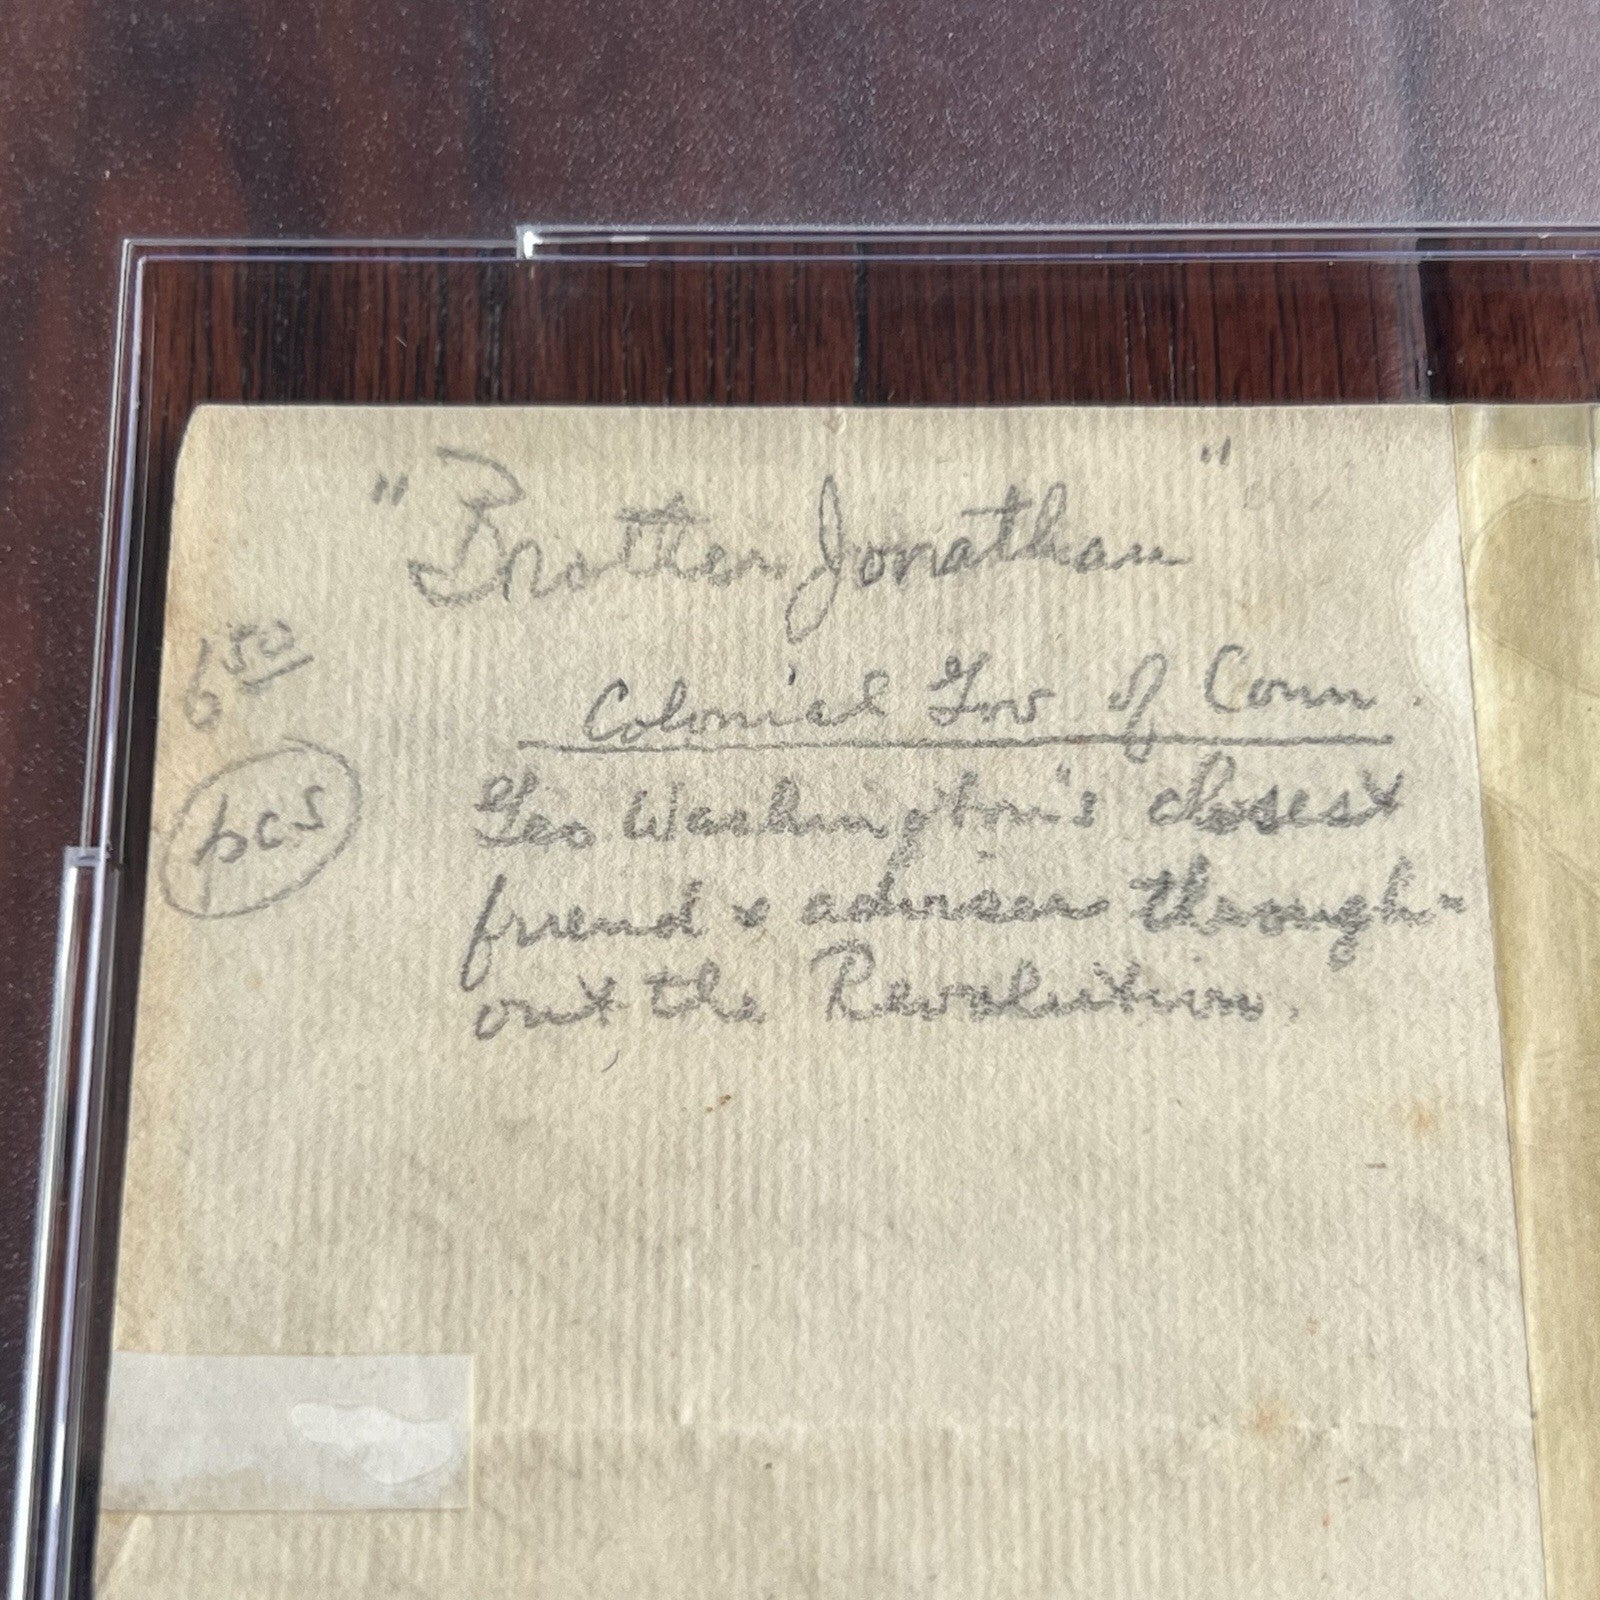 "Brother Jonathan"
6 50
Colonial Gov of Conn.
pcs
Geo Washington's closest
friend & adviser through-
out the Revolution.